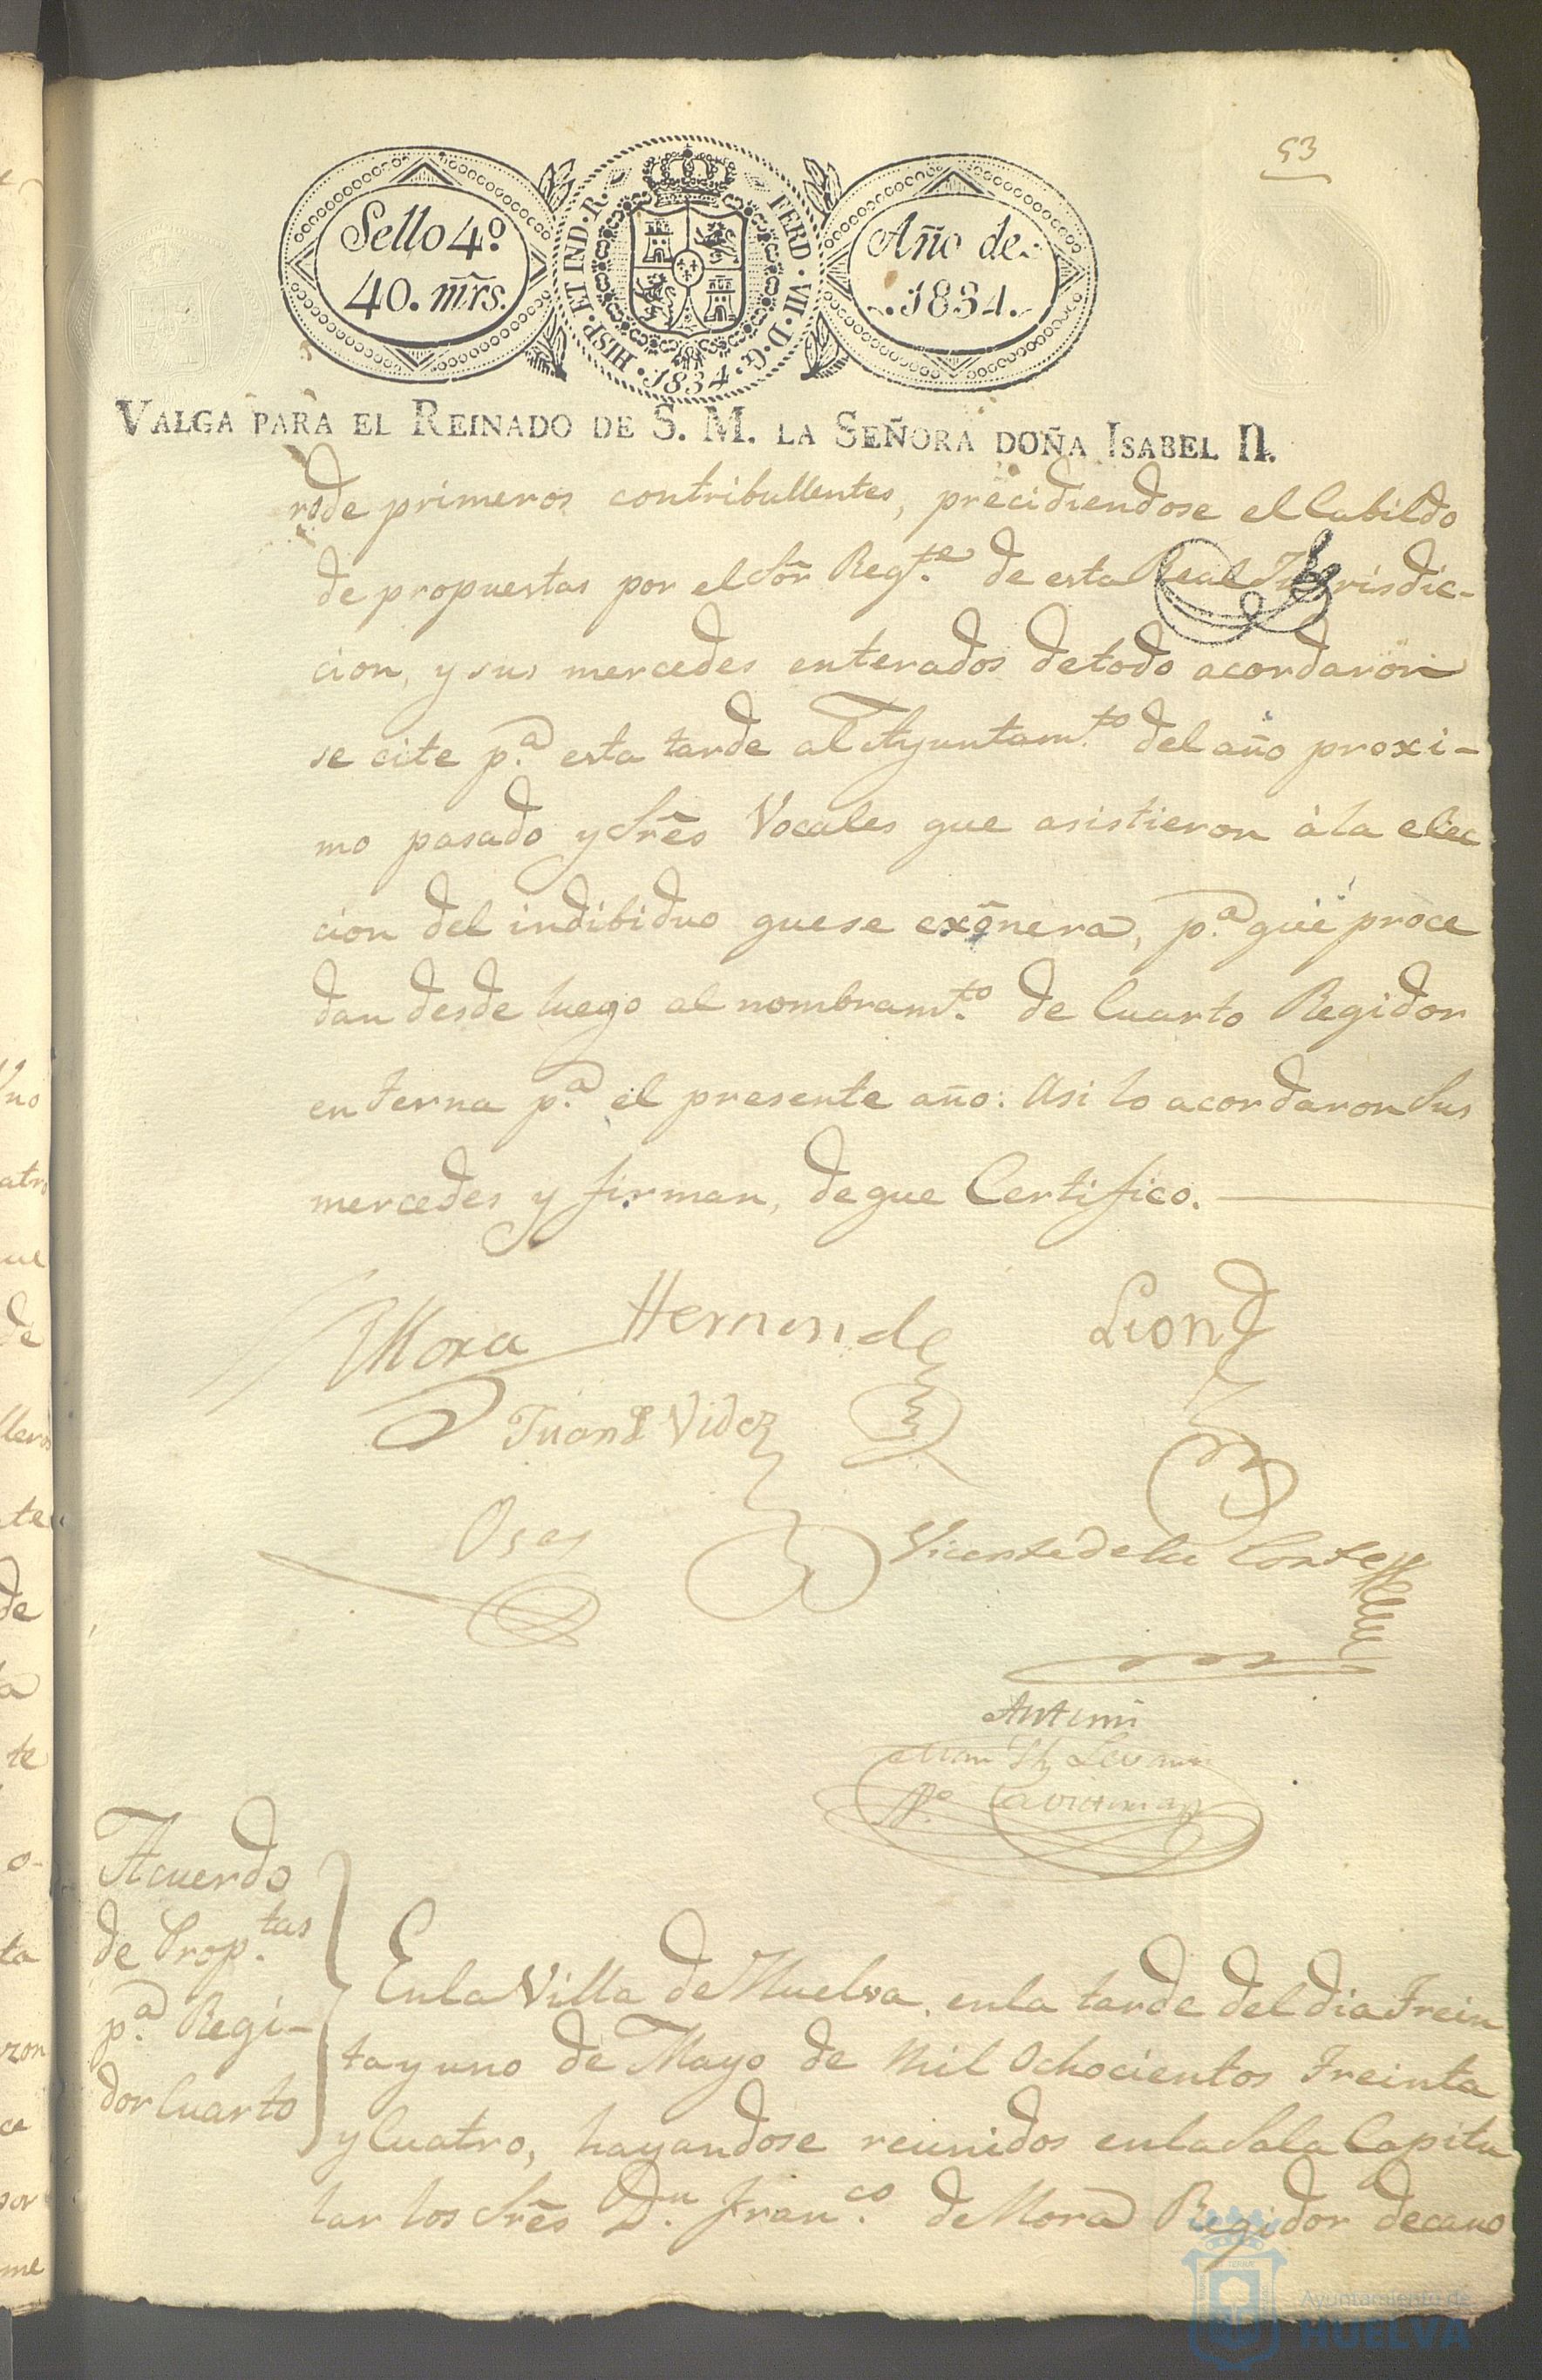 53
Sello 4.º
40. mr̃s.
HISP. ET IND. R. FERD. VII. D. G. 1834.
Año de
1834.
VALGA PARA EL REINADO DE S. M. LA SEÑORA DOÑA ISABEL II.
de primeros contribullentes, precidiendose el Cabildo
de propuestas por el Sõr Reg.te de esta Real Jurisdic-
cion, y sus mercedes enterados de todo acordaron
se cite p.a esta tarde al Ayuntam.to del año proxi-
mo pasado y Sr̃es Vocales que asistieron à la elec
cion del indibiduo que se exônera, p.a que proce
dan desde luego al nombram.to de Cuarto Regidor
en terna p.a el presente año: Asi lo acordaron Sus
mercedes y firman, de que Certifico.
Mora Hernnde Leon
Juan Videz
Oses Vicente de la Corte
Antemi
Acuerdo
de Prop.tas
p.a Regi-
dor Cuarto
En la Villa de Huelva en la tarde del dia Trein
ta y uno de Mayo de Mil Ochocientos Treinta
y Cuatro, hayandose reunidos en la Sala Capitu
lar los Sr̃es D.n Fran.co de Mora Regidor decano
Ayuntamiento de
HUELVA